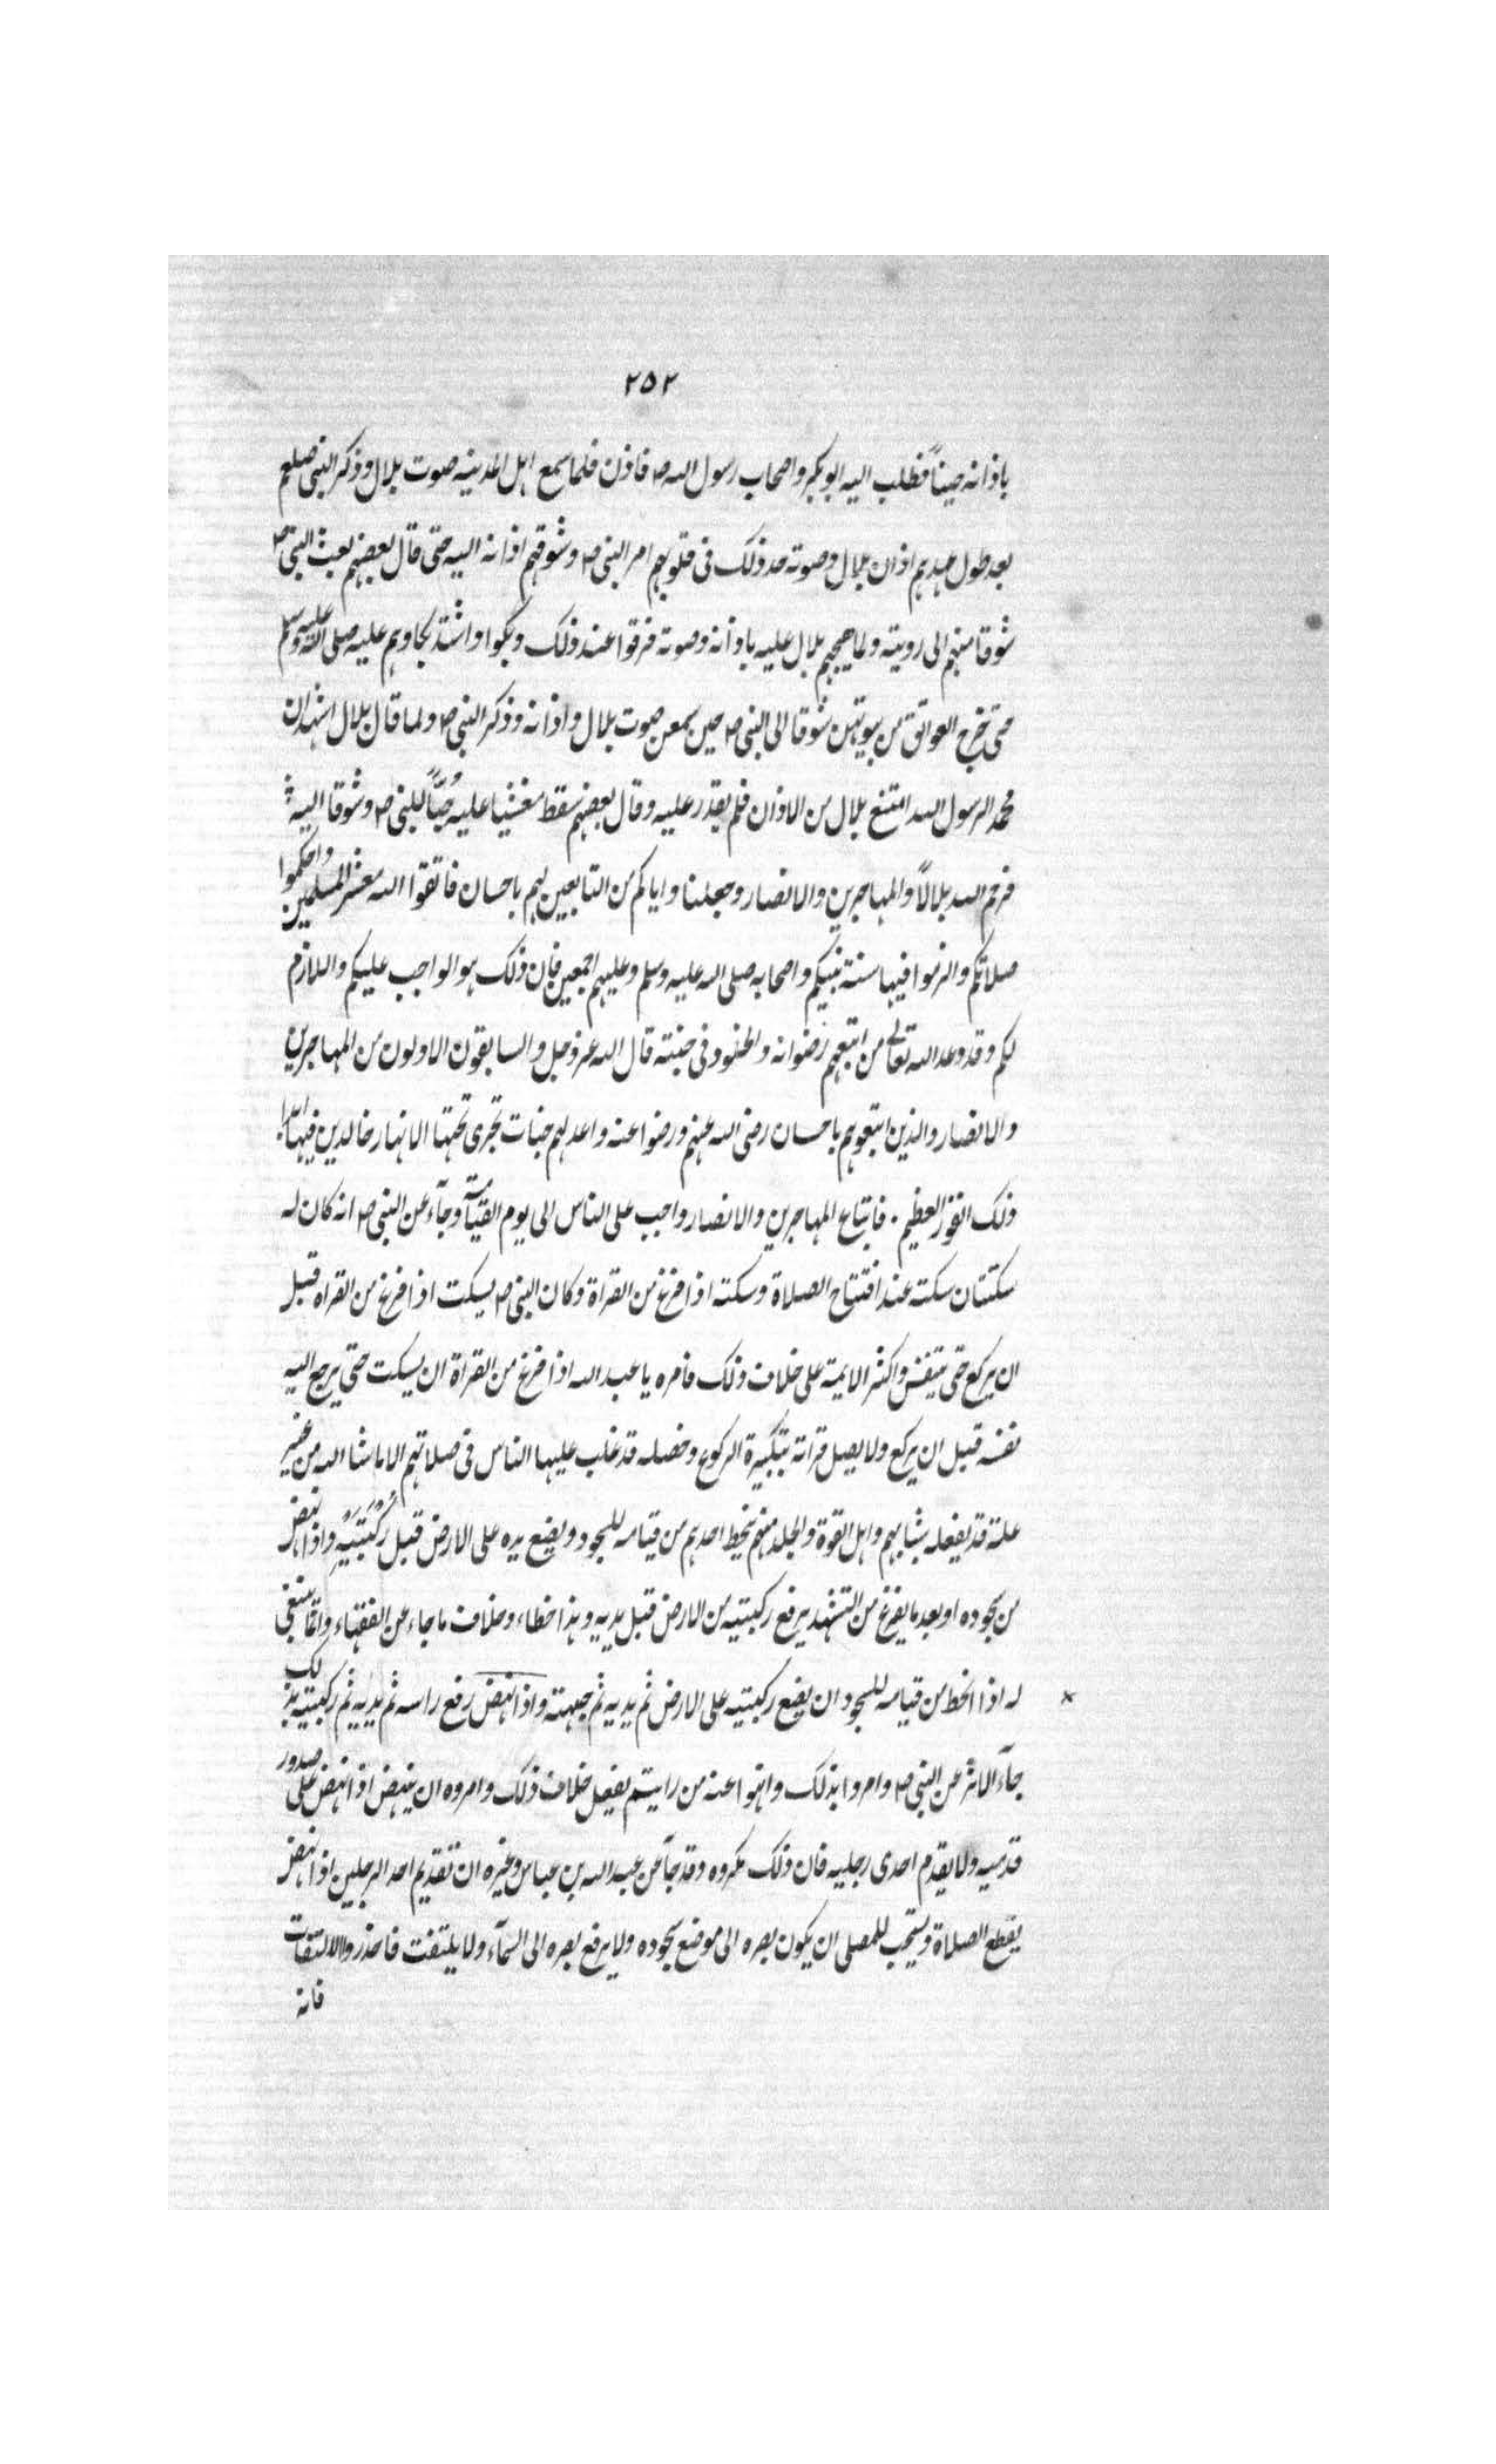 ٢٥٢
باذانه حيناً فطلب اليه ابو بكر واصحاب رسول الله ص فاذن فلما سمع اهل المدينه صوت بلال وذكر النبي صلعم
بعد طول عهدهم اذان بلال وصوته جدد ذلك في قلوبهم امر النبي ص وشوقهم اذانه اليه حتى قال بعضهم بعث النبي ص
شوقا منهم الى رويته ولما هيجهم بلال عليه باذانه وصوته فرقوا عند ذلك وبكوا واشتد بكاوهم عليه صلى الله عليه وسلم
حتى خرج العواتق من بيوتهن شوقا الى النبي ص حين سمعن صوت بلال واذانه وذكر النبي ص ولما قال بلال اشهد ان
محمد الرسول الله امتنع بلال من الاذان فلم يقدر عليه وقال بعضهم سقط مغشيا عليه حُبّاً للنبي ص وشوقا اليه
فرحم الله بلالاً والمهاجرين والانصار وجعلنا واياكم من التابعين لهم باحسان فاتقوا الله معشر المسلمين واحكموا
صلاتكم والزموا فيها سنة نبيكم واصحابه صلى الله عليه وسلم وعليهم اجمعين فان ذلك هو الواجب عليكم واللازم
لكم وقد وعد الله تعالى من اتبعهم رضوانه والخلود في جنته قال الله عز وجل والسابقون الاولون من المهاجرين
والانصار والذين اتبعوهم باحسان رضى الله عنهم ورضوا عنه واعد لهم جنات تجرى تحتها الانهار خالدين فيها ابدا
ذلك الفوز العظيم . فاتباع المهاجرين والانصار واجب على الناس الى يوم القيامة وجآء عن النبي ص انه كان له
سكتتان سكته عند افتتاح الصلاة وسكته اذا فرغ من القراة وكان النبي ص يسكت اذا فرغ من القراة قبل
ان يركع حتى يتنفس واكثر الايمة على خلاف ذلك فأمره يا عبد الله اذا فرغ من القراة ان يسكت حتى يرجع اليه
نفسه قبل ان يركع ولا يصل قراته بتكبيرة الركوع وخصله قد غلب عليها الناس في صلاتهم الا ما شا الله من غير
علة قد يفعله شبابهم واهل القوة والجلد منهم ينحط احدهم من قيامه للسجود ويضع يده على الارض قبل رُكْبَتَيْهِ واذا نهض
من سجوده او بعد ما يفرغ من التشهد يرفع ركبتيه من الارض قبل يديه وهذا خطاء وخلاف ما جاء عن الفقهاء وانما ينبغي
له اذا انحط من قيامه للسجود ان يضع ركبتيه على الارض ثم يديه ثم جبهته واذا نهض رفع راسه ثم يديه ثم ركبتيه بذلك
جآء الاثر عن النبي ص وامروا بذلك وانهوا عنه من رايتم يفعل خلاف ذلك وامروه ان ينهض اذا نهض على صدور
قدميه ولا يقدم احدى رجليه فان ذلك مكروه وقد جآء عن عبد الله بن عباس وغيره ان تقديم احد الرجلين اذا نهض
يقطع الصلاة ويستحب للمصلى ان يكون بصره الى موضع سجوده ولا يرفع بصره الى السمآء ولا يلتفت فاحذروا الالتفات
فانه